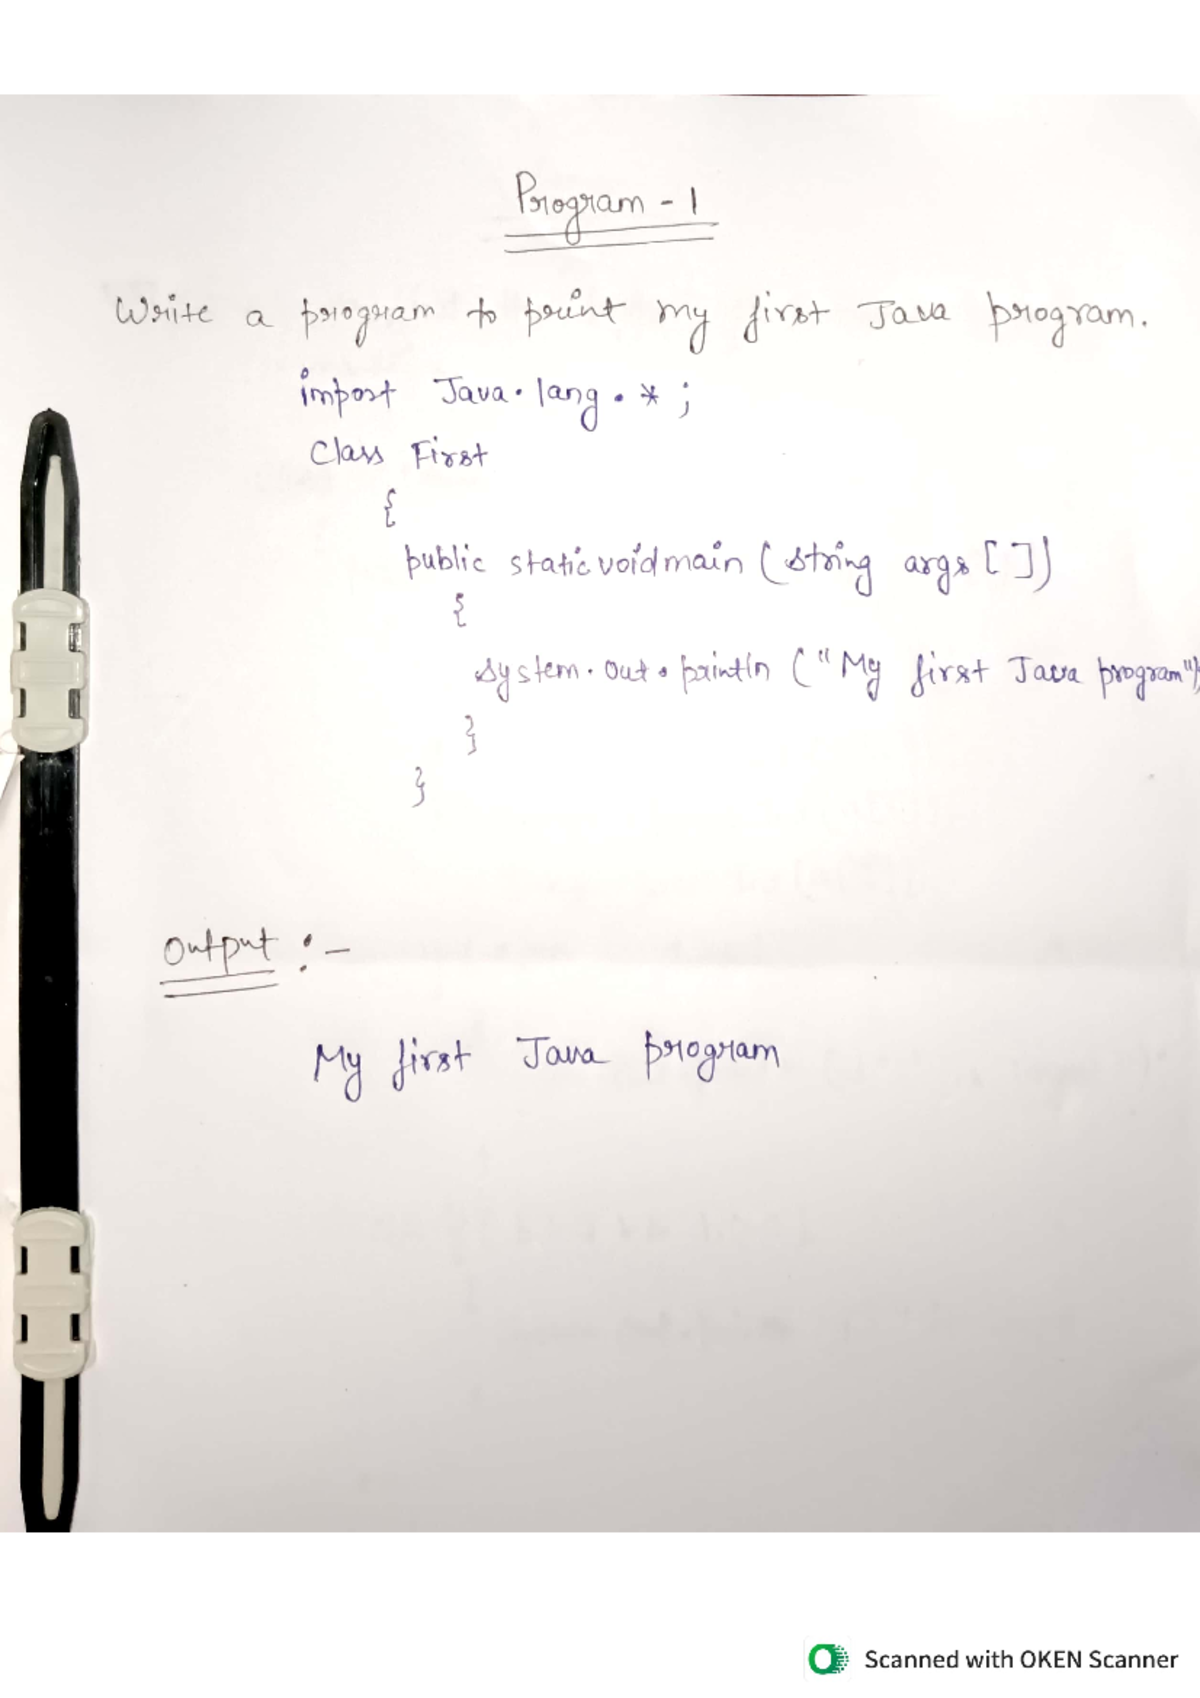 Program - 1
Write a program to print my first Java program.
import Java.lang.*;
Class First
{
public static void main (string args [])
{
system.out.println ("My first Java program");
}
}
Output :-
My first Java program
Scanned with OKEN Scanner